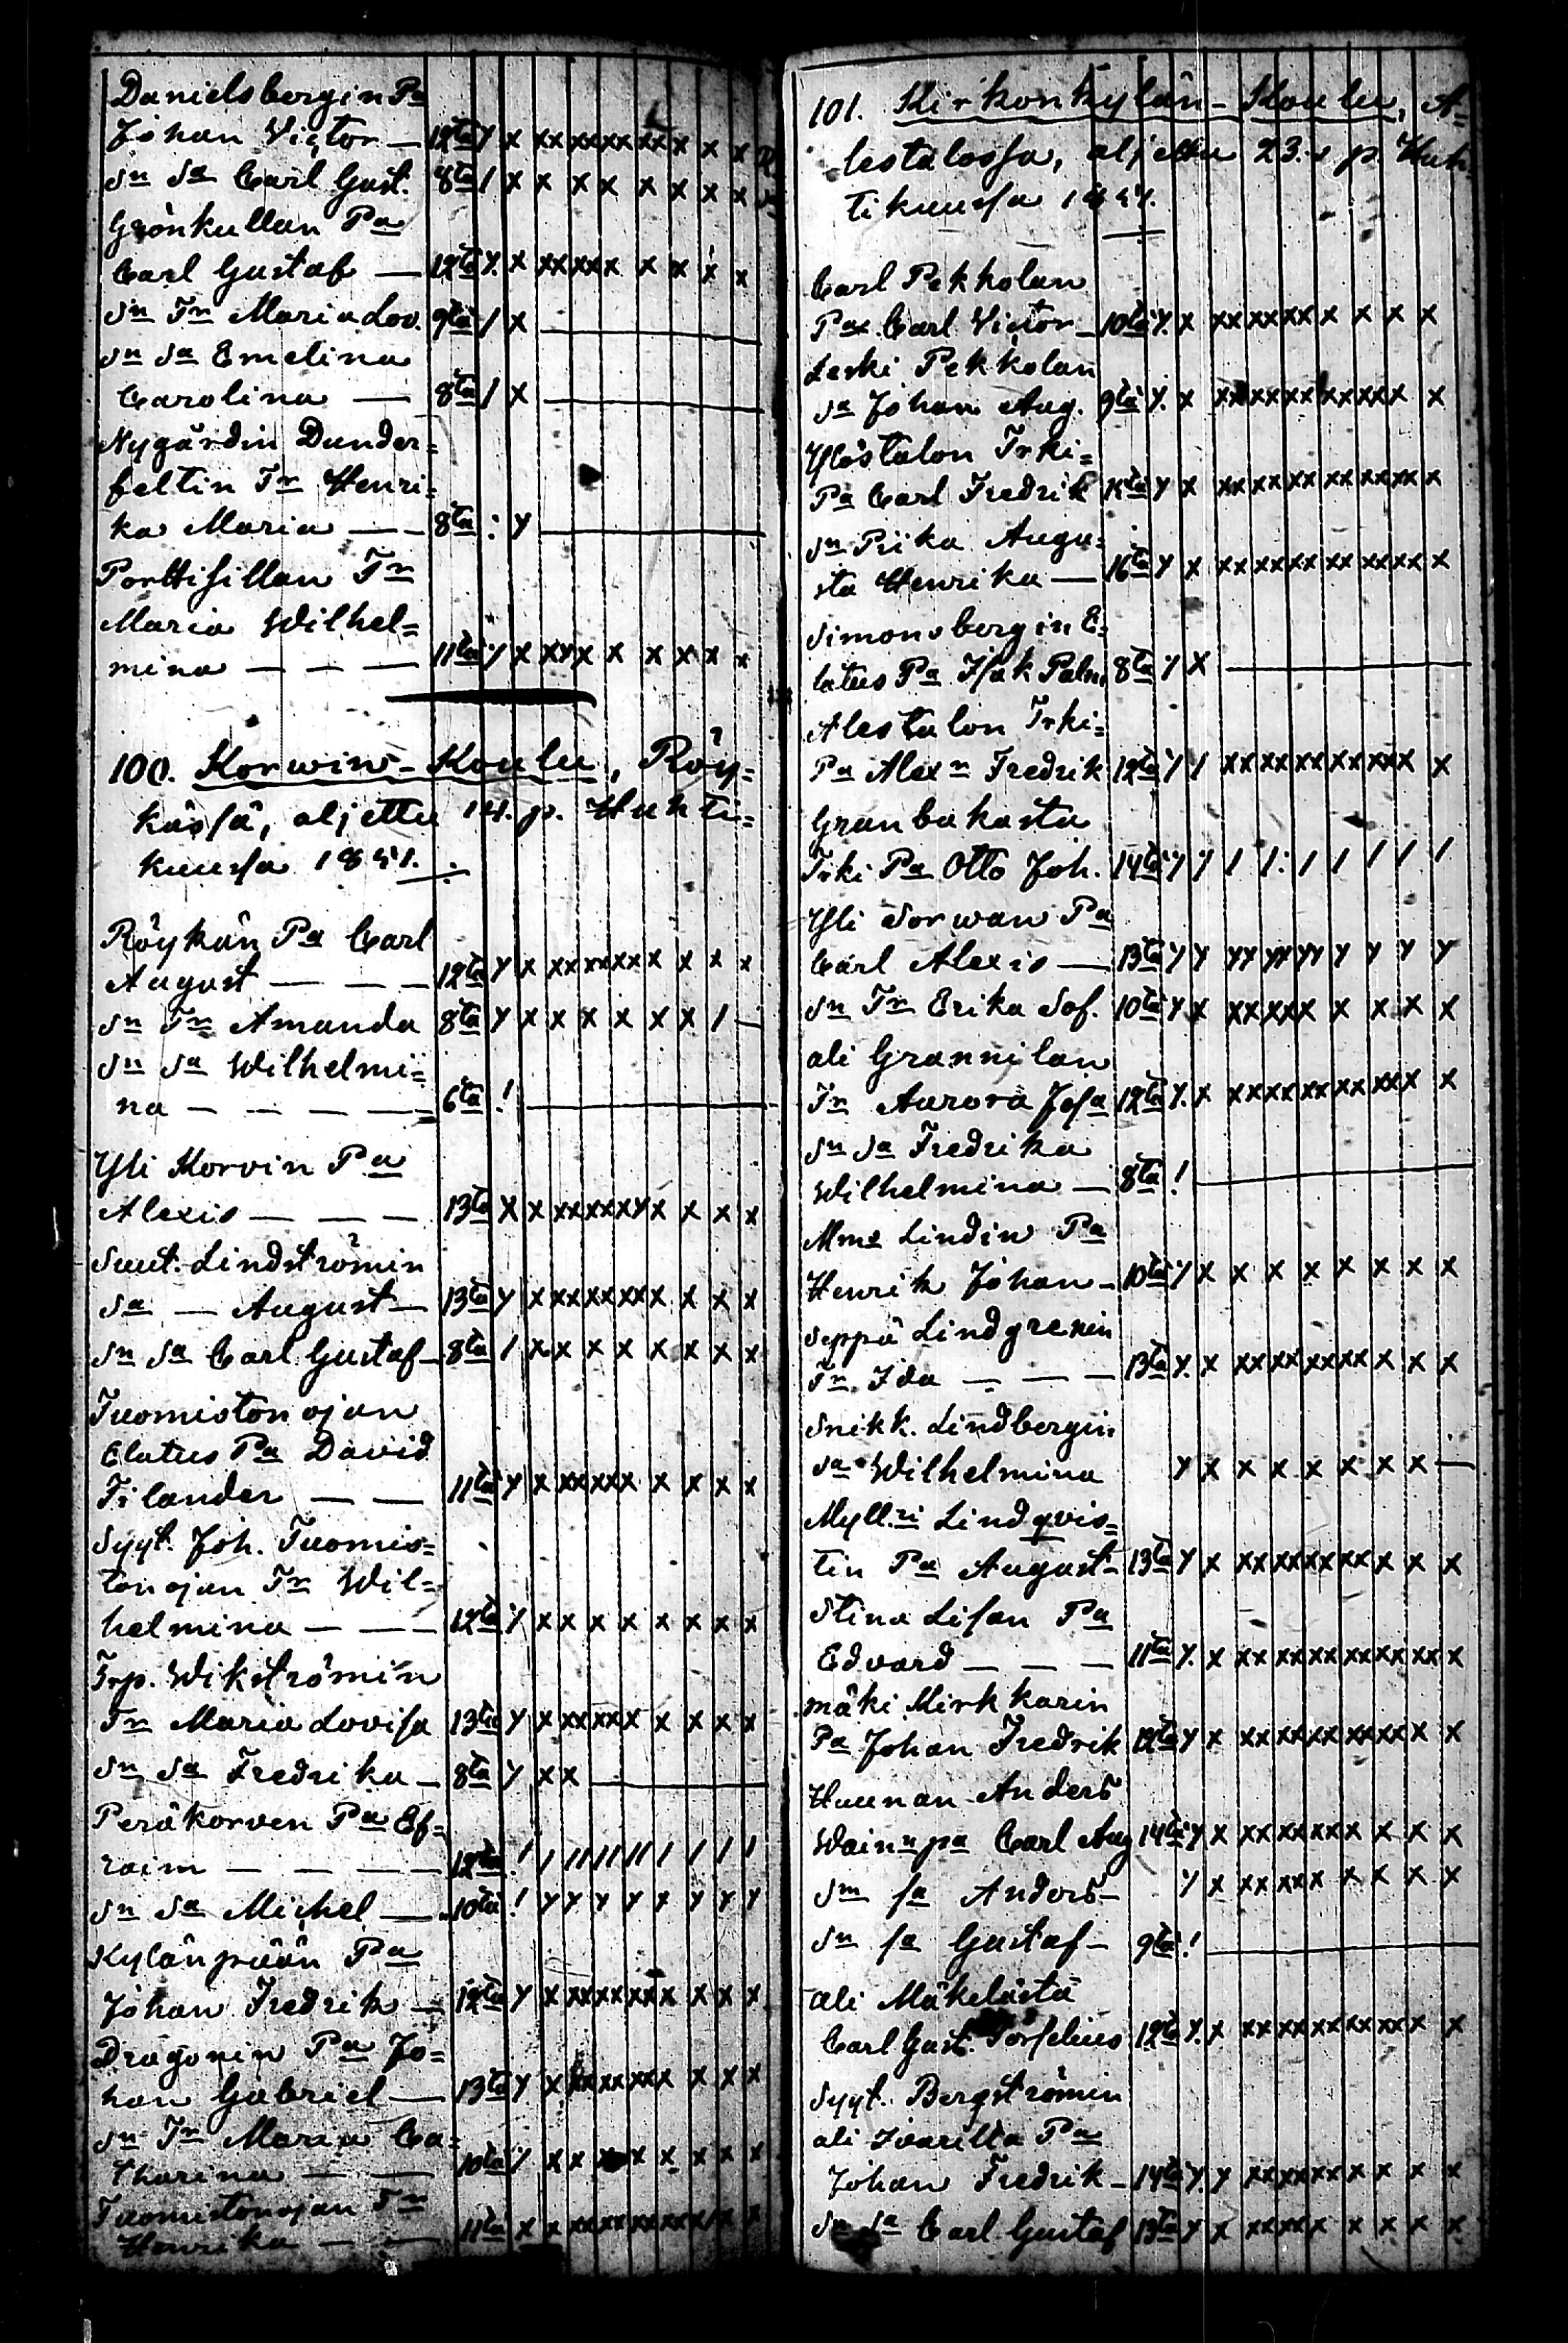 Danielsbergin Pa
Johan Victor — 12ta y x xx xx xx xx x x x
Sn Sa Carl Gust. 8ta / x x x x x x x x
Grönkullan Pa
Carl Gustaf — 12ta y. x xx xx x x x x x
Sn Tr Maria Lov. 9ta / x —
Sn Sa Emelina
Carolina — 8ta / x —
Nygårdin Dunder=
feltin Tr Henri=
ka Maria — — 8ta : y —
Porttisillan Tr
Maria Wilhel=
mina — — — 11ta y x xy x x x x x x
100. Korwin-Koulu, Röy=
kässä, aljettu 14. p. Huhti=
kuussa 1851.
Röykän Pa Carl
August — — — 12ta y x xx xx xx x x x x
Sn Tr Amanda 8ta y x x x x x x / —
Sn Sa Wilhelmi=
na — — — — 6ta ! —
Yli Korvin Pa
Alexis — — — 13ta x x xx xx xy x x x x
Suut. Lindströmin
Sa — August — 13ta y x xx xx xx x x x x
Sn Sa Carl Gustaf — 8ta / x x x x x x x x
Tuomistonojan
Elatus Pa David
Filander — — 11ta y x xx xx x x x x x
Syyt. Joh. Tuomis=
tonojan Tr Wil=
helmina — — — 12ta y x x x x x x x x
Trp. Wikströmin
Tr Maria Lovisa 13ta y x xx xx x x x x x
Sn Sa Fredrika — 8ta y x x —
Peräkorven Pa Ef=
raim — — — — 12ta ! / // // // / / / /
Sn Sa Michel — 10ta ! y y y y x y y y
Kylänpään Pa
Johan Fredrik — 12ta y x xx xx xx x x x x
Dragonin Pa Jo=
han Gabriel — 13ta y x xx xx xx x x x x
Sn Tr Maria Ca=
tharina — — 10ta y x x x x x x x x
Tuomistonojan Tr
Henrika — — 11ta x x xx xx xx xx x x
101. Kirkonkylän-Koulu, A=
lestalossa, aljettu 23. p. Huh
tikuussa 1851.
Carl Pekkolan
Pa Carl Victor — 10ta y. x xx xx xx x x x x
Leski Pekkolan
Sa Johan Aug. 9ta y. x xx xx xx xx xx x x
Ylöstalon Trki=
Pa Carl Fredrik y x xx xx xx xx xx x x
Sn Piika Augu=
sta Henrika — 16ta y x xx xx xx xx xx x x
Simonsbergin E=
latus Pa Isak Palm 8ta y x —
Alestalon Trki=
Pa Alexn Fredrik 12ta y / xx xx xx xx xx x x
Granbakasta
Trki Pa Otto Joh. 14ta y y / /: / / / / /
Yli Sorwan Pa
Carl Alexis — 13ta y y yy yy yy y y y y
Sn Tr Erika Sof. 10ta y x xx xx x x x x x
ali Grannilan
Tr Aurora Josa 12ta y. x xx xx xx xx xx x x
Sn Sa Fredrika
Wilhelmina — 8ta ! —
Lindin Pa
Henrik Johan — 10ta y x x x x x x x x
Seppä Lindgrenin
Tr. Ida — — — 13ta y. x xx xx xx xx x x x
Snikk. Lindbergin
Sa Wilhelmina y x x x x x x x —
Myll:ri Lindqvis=
tin Pa August — 13ta y x xx xx xx xx x x x
Stina Lisan Pa
Edvard — — — 11ta y. x xx xx xx xx xx xx x
mäki Kirkkarin
Pa Johan Fredrik 12ta y x xx xx xx xx xx x x
Huunan Anders
Wainn pa Carl Aug 14ta y x xx xx xx x x x x
Sm sa Anders — y x xx xx x x x x x
Sn sa Gustaf — 9ta ! —
ali Mäkelästä
Carl Gust. 12ta y. x xx xx xx xx xx x x
Syyt. Bergströmin
ali Pa
Johan Fredrik — 14ta y. y xx xx xx x x x x
Sn Sa Carl Gustaf 13ta y x xx xx x x x x x